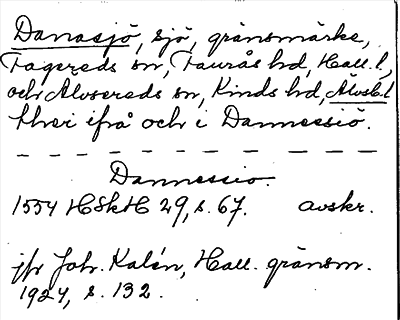 Danasjö, sjö, gränsmärke,
Fagereds sn, Faurås hd, Hall. l.,
och Älvsereds sn, Kinds hd, Älvsb. l
thær ifrå och i Dannessiö.
Dannessio.
1554 HSkH 29, s. 67. avskr.
jfr Joh. Kalén, Hall. gränsm.
1924, s. 132.